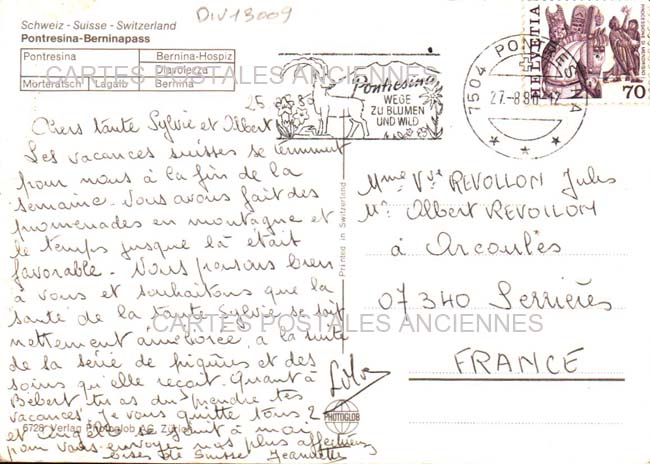 DIV13009
Schweiz - Suisse - Switzerland
Pontresina-Berninapass
Pontresina Bernina-Hospiz
Diavolezza
Morteratsch Lagalb Bernina
CARTES POSTALES ANCIENNES
Pontresina
WEGE
ZU BLUMEN
UND WILD
7504 PONTRESINA
27-8.80-12
HELVETIA
70
25
Chers tante Sylvie et Albert
Les vacances suisses se terminent
pour nous à la fin de la
semaine. Nous avons fait des
promenades en montagne et
le temps jusque là était
favorable. Nous pensons bien
à vous et souhaitons que la
santé de la tante Sylvie se soit
nettement améliorée, à la suite
de la série de piqûres et des
soins qu'elle reçoit. Quant à
Bébert tu as dû prendre tes
vacances. Je vous quitte tous 2
et se joint à moi
pour vous envoyer nos plus affectueuses
bises de Suisse Jeannette
Printed in Switzerland
PHOTOGLOB
6728 Verlag Photoglob AG, Zürich
Mme Vve REVOLLON Jules
Mr Albert REVOLLON
à Arcoulès
07340 Serrières
FRANCE
CARTES POSTALES ANCIENNES